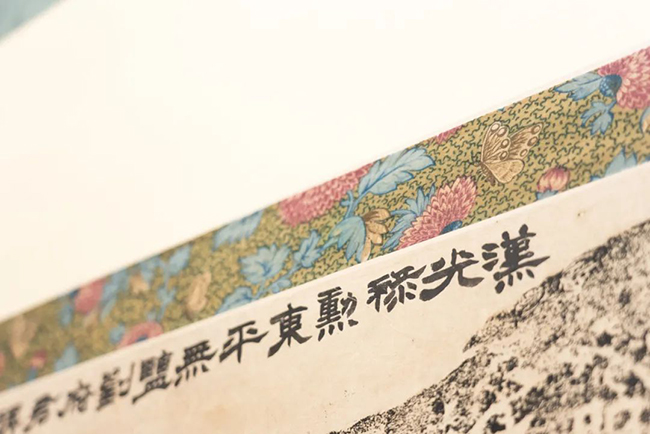 漢光祿勳東平無鹽劉府君